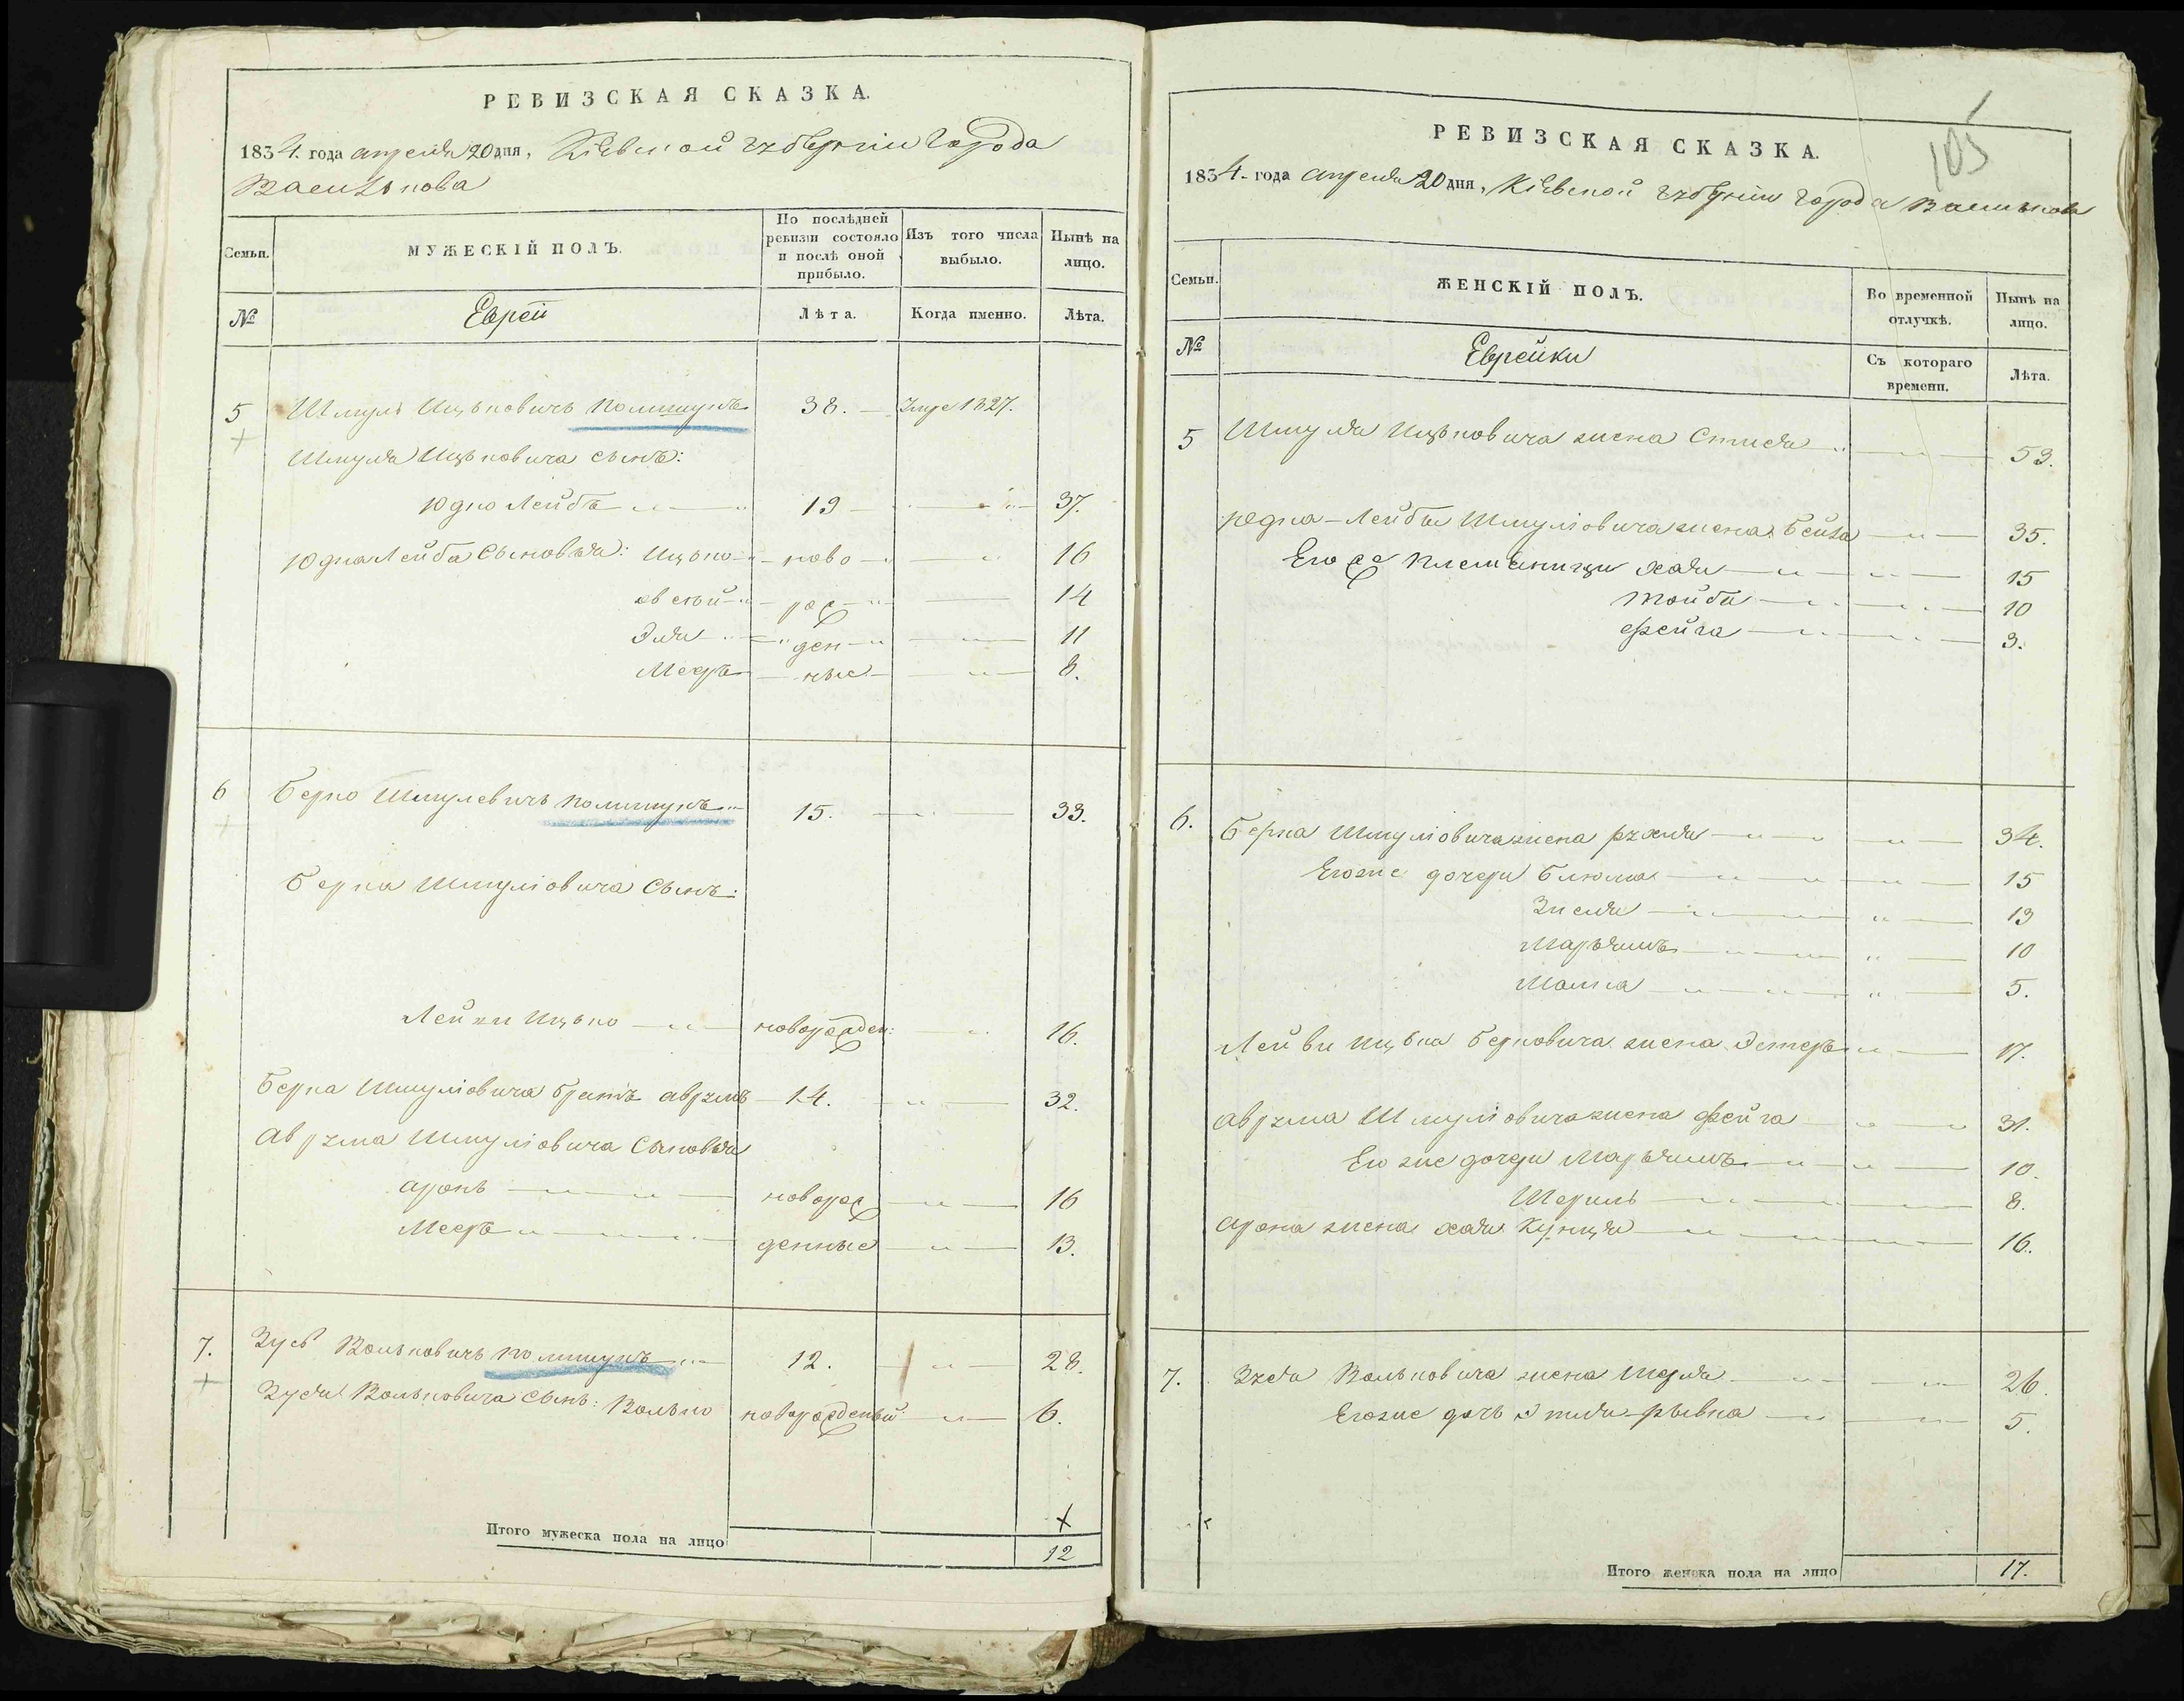 РЕВИЗСКАЯ СКАЗКА.
1834. года апреля 20 дня, Кіевской губерніи города
Василькова
Семьи.
МУЖЕСКІЙ ПОЛЪ.
По послѣдней ревизіи состояло и послѣ оной прибыло.
Изъ того числа выбыло.
Нынѣ на лицо.
№
Евреи
Лѣта.
Когда именно.
Лѣта.
5 Шмуль Ицьковичь Полищукъ 38. Умре 1827.
Шмуля Ицьковича сынъ:
Юдко Лейбъ 19 37.
Юдка Лейба сыновья: Ицько ново 16
Овсѣй рож 14
Эля ден 11
Мееръ ные 8.
6 Берко Шмулевичь Полищукъ 15. 33.
Берка Шмуліовича Сынъ:
Лейзи Ицько новорожден: 16.
Берка Шмуліовича братъ Аврумъ 14. 32.
Аврума Шмуліовича Сыновья
Аронъ новорож 16
Мееръ денные 13.
7. Зусь Вольковичь Полищукъ 12. 28.
Зуся Вольковича сынъ: Волько новорожденый 6.
Итого мужеска пола на лицо
12
105
РЕВИЗСКАЯ СКАЗКА.
1834. года апреля 20 дня, Кіевской губерніи города Василькова
Семьи.
ЖЕНСКІЙ ПОЛЪ.
Во временной отлучкѣ.
Нынѣ на лицо.
№
Еврейки
Съ котораго времени.
Лѣта.
5 Шмуля Ицьковича жена Стися 53.
Юдка-Лейбы Шмуліовича жена Бейла 35.
Его же племеницы Хая 15
Тойба 10
Фейга 3.
6. Берка Шмуліовича жена Рухля 34.
Его же дочери Блюма 15
Зисля 13
Марьямъ 10
Малка 5.
Лейви Ицька Берковича жена Эстеръ 17.
Аврума Шмуліовича жена Фейга 31.
Его же дочери Марьямъ 10.
Шериль 8.
Арона жена Хая Куница 16.
7. Зуся Вольковича жена Шедля 26.
Его же дочь Этля-Рывка 5.
Итого женска пола на лицо 17.